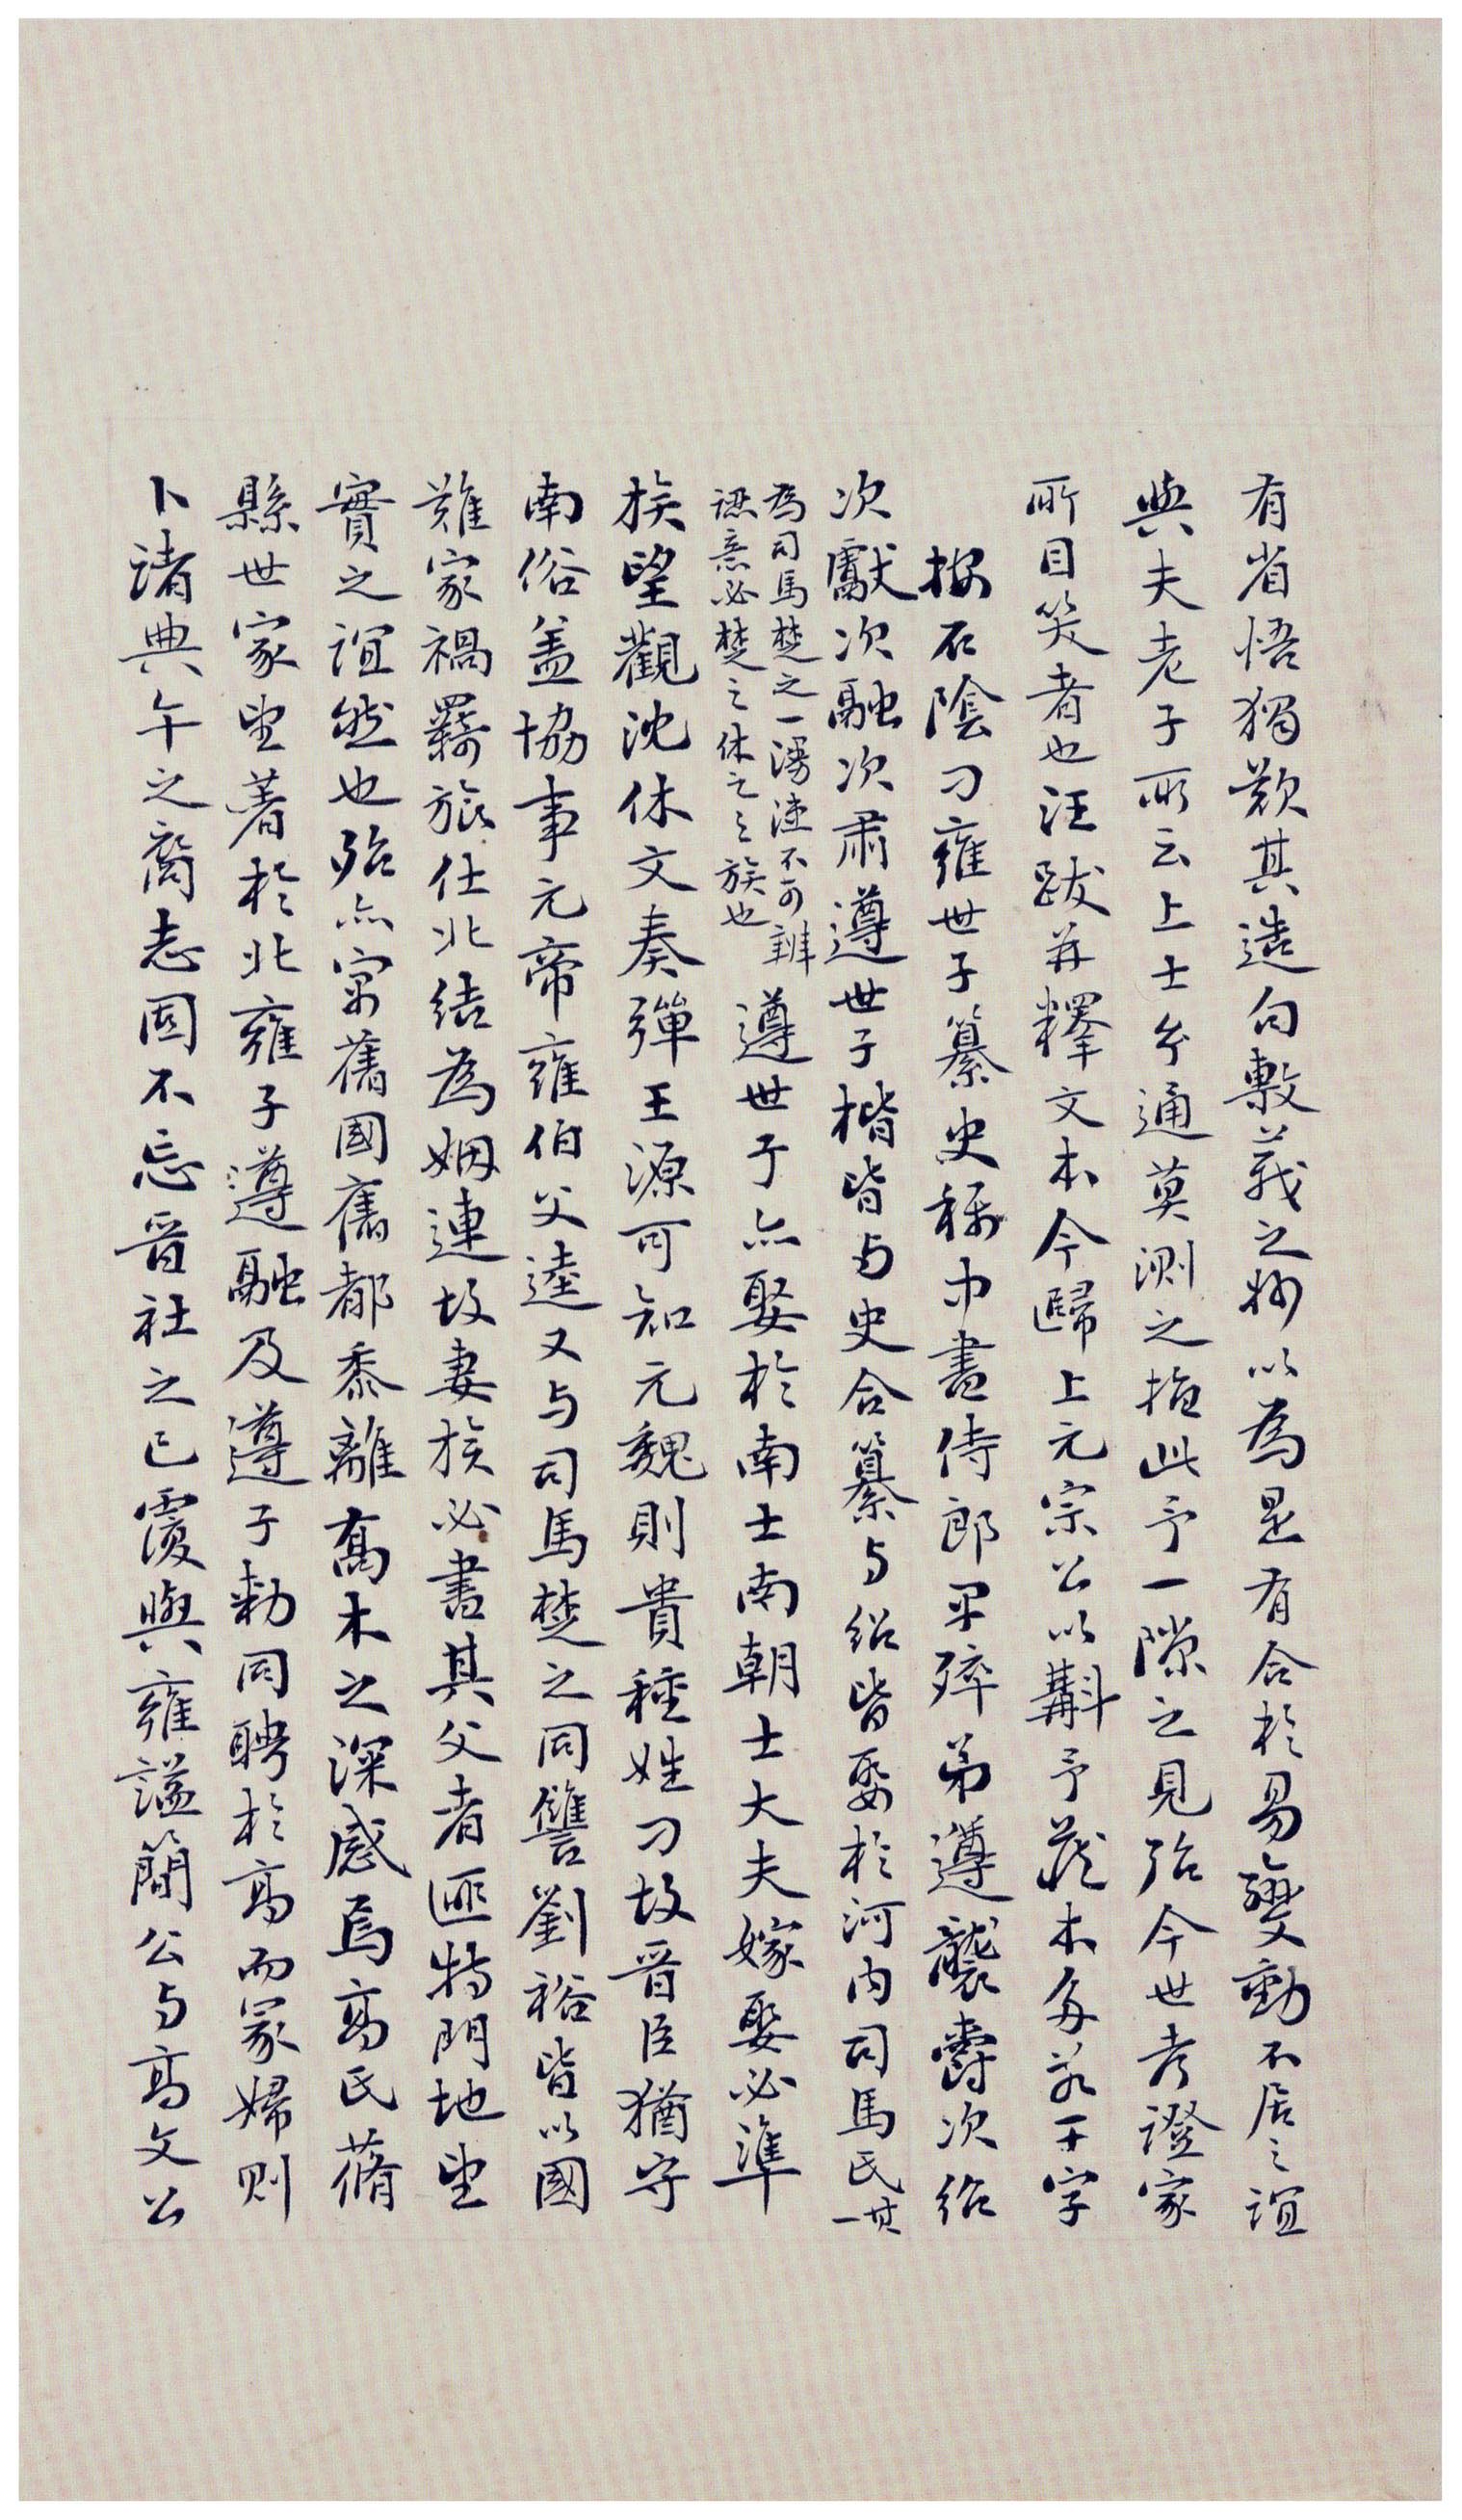 有省悟獨歎其造句敷義之妙以為是有合於易變動不居之誼
與夫老子所云上士兮通莫測之恉此予一隙之見殆今世考證家
所目笑者也汪跋并釋文本今歸上元宗公以斠予藏本多若干字
按石陰刁雍世子纂史稱中書侍郎早殌弟遵襲爵次紹
次獻次融次肅遵世子楷皆与史合纂与紹皆娶於河內司馬氏一其
為司馬楚之一漫漶不可辨
諦意必楚之休之之族也
遵世子亦娶於南士南朝士大夫嫁娶必準
族望觀沈休文奏彈王源可知元魏則貴種姓刁故晉臣猶守
南俗盖協事元帝雍伯父逵又与司馬楚之同讐劉裕皆以國
難家禍羇旅仕北結為姻連故妻族必書其父者匪特門地望
實之誼然也殆亦寓舊國舊都黍離喬木之深感焉高氏蓨
縣世家望著於北雍子遵融及遵子勑同聘於高而冢婦則
卜諸典午之裔志固不忘晉社之已覆與雍謚簡公与高文公